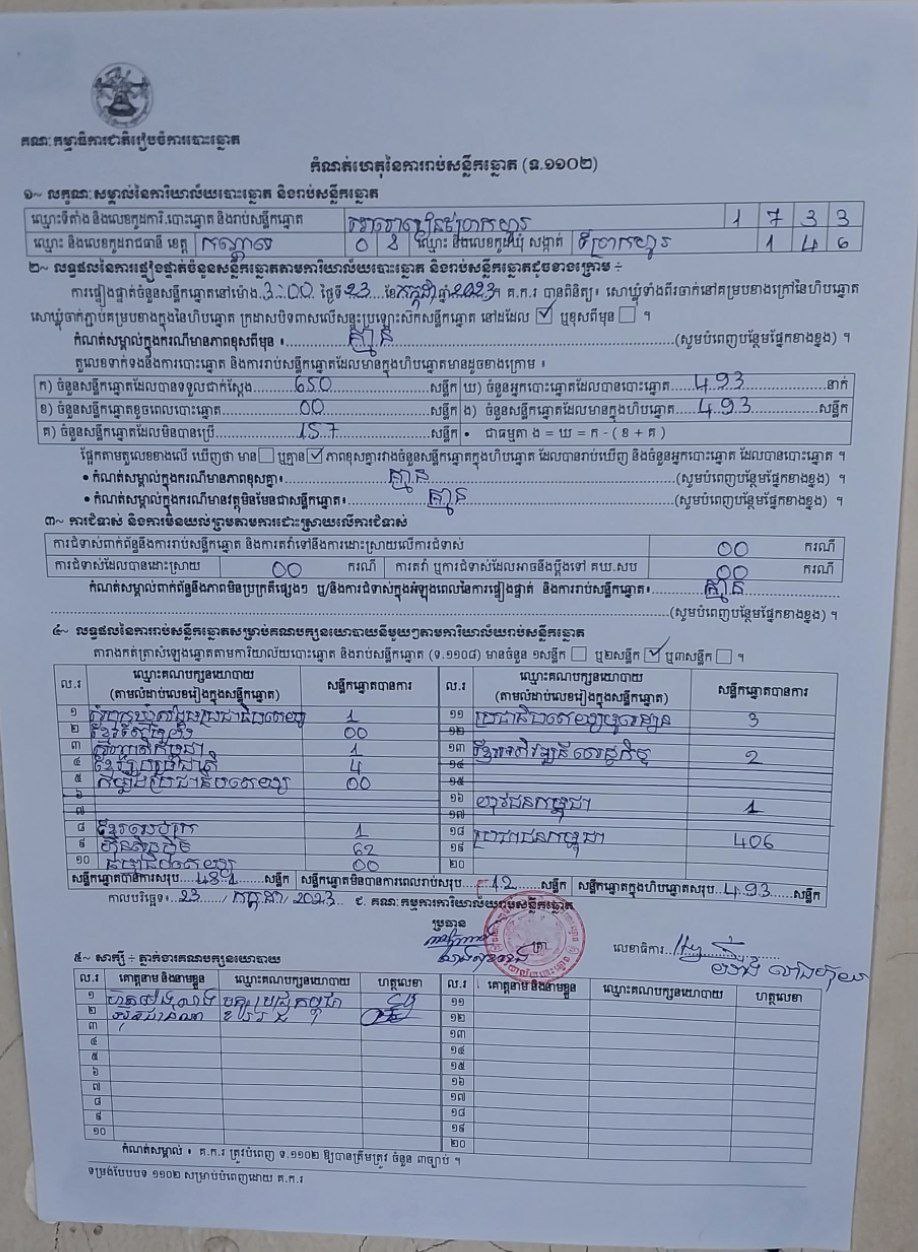 គណៈកម្មាធិការជាតិរៀបចំការបោះឆ្នោត
កំណត់ហេតុនៃការរាប់សន្លឹកឆ្នោត (ទ.១១០២)
១~ លក្ខណៈសម្គាល់នៃការិយាល័យបោះឆ្នោត និងរាប់សន្លឹកឆ្នោត
ឈ្មោះទីតាំង និងលេខកូដការិ.បោះឆ្នោត និងរាប់សន្លឹកឆ្នោត 1 7 3 3
ឈ្មោះ និងលេខកូដរាជធានី ខេត្ត កណ្តាល 0 8 ឈ្មោះ និងលេខកូដឃុំ សង្កាត់ 1 4 6
២~ លទ្ធផលនៃការផ្ទៀងផ្ទាត់ចំនួនសន្លឹកឆ្នោតតាមការិយាល័យបោះឆ្នោត និងរាប់សន្លឹកឆ្នោតដូចខាងក្រោម ÷
ការផ្ទៀងផ្ទាត់ចំនួនសន្លឹកឆ្នោតនៅម៉ោង 3:00 ថ្ងៃទី 23 ខែ កក្កដា ឆ្នាំ 2023។ គ.ក.រ បានពិនិត្យ៖ សោឃ្មុំទាំងពីរចាក់នៅគម្របខាងក្រៅនៃហិបឆ្នោត
សោឃ្មុំចាក់ភ្ជាប់គម្របខាងក្នុងនៃហិបឆ្នោត ក្រដាសបិទពាសលើសន្ទះប្រឡោះស៊កសន្លឹកឆ្នោត នៅដដែល ☑ ឬខុសពីមុន ☐ ។
កំណត់សម្គាល់ក្នុងករណីមានភាពខុសពីមុន ៖ គ្មាន (សូមបំពេញបន្ថែមផ្នែកខាងខ្នង) ។
តួលេខទាក់ទងនឹងការបោះឆ្នោត និងការរាប់សន្លឹកឆ្នោតដែលមានក្នុងហិបឆ្នោតមានដូចខាងក្រោម ៖
ក) ចំនួនសន្លឹកឆ្នោតដែលបានទទួលជាក់ស្តែង 650 សន្លឹក ឃ) ចំនួនអ្នកបោះឆ្នោតដែលបានបោះឆ្នោត 493 នាក់
ខ) ចំនួនសន្លឹកឆ្នោតខូចពេលបោះឆ្នោត 00 សន្លឹក ង) ចំនួនសន្លឹកឆ្នោតដែលមានក្នុងហិបឆ្នោត 493 សន្លឹក
គ) ចំនួនសន្លឹកឆ្នោតដែលមិនបានប្រើ 157 សន្លឹក • ជាធម្មតា ង = ឃ = ក - ( ខ + គ )
ផ្អែកតាមតួលេខខាងលើ ឃើញថា មាន ☐ ឬគ្មាន ☑ ភាពខុសគ្នារវាងចំនួនសន្លឹកឆ្នោតក្នុងហិបឆ្នោត ដែលបានរាប់ឃើញ និងចំនួនអ្នកបោះឆ្នោត ដែលបានបោះឆ្នោត ។
• កំណត់សម្គាល់ក្នុងករណីមានភាពខុសគ្នា៖ គ្មាន (សូមបំពេញបន្ថែមផ្នែកខាងខ្នង) ។
• កំណត់សម្គាល់ក្នុងករណីមានវត្ថុមិនមែនជាសន្លឹកឆ្នោត៖ គ្មាន (សូមបំពេញបន្ថែមផ្នែកខាងខ្នង) ។
៣~ ការជំទាស់ និងការមិនយល់ព្រមតាមការដោះស្រាយលើការជំទាស់
ការជំទាស់ពាក់ព័ន្ធនឹងការរាប់សន្លឹកឆ្នោត និងការតវ៉ាទៅនឹងការដោះស្រាយលើការជំទាស់ 00 ករណី
ការជំទាស់ដែលបានដោះស្រាយ 00 ករណី ការតវ៉ា ឬការជំទាស់ដែលអាចនឹងប្តឹងទៅ គឃ.សប 00 ករណី
កំណត់សម្គាល់ពាក់ព័ន្ធនឹងភាពមិនប្រក្រតីផ្សេងៗ ឬ/និងការជំទាស់ក្នុងអំឡុងពេលនៃការផ្ទៀងផ្ទាត់ និងការរាប់សន្លឹកឆ្នោត៖ គ្មាន
(សូមបំពេញបន្ថែមផ្នែកខាងខ្នង) ។
៤~ លទ្ធផលនៃការរាប់សន្លឹកឆ្នោតសម្រាប់គណបក្សនយោបាយនីមួយៗតាមការិយាល័យរាប់សន្លឹកឆ្នោត
តារាងកត់ត្រាសំឡេងឆ្នោតតាមការិយាល័យបោះឆ្នោត និងរាប់សន្លឹកឆ្នោត (ទ.១១០៨) មានចំនួន ១សន្លឹក ☐ ឬ២សន្លឹក ☑ ឬ៣សន្លឹក ☐ ។
ល.រ ឈ្មោះគណបក្សនយោបាយ (តាមលំដាប់លេខរៀងក្នុងសន្លឹកឆ្នោត) សន្លឹកឆ្នោតបានការ ល.រ ឈ្មោះគណបក្សនយោបាយ (តាមលំដាប់លេខរៀងក្នុងសន្លឹកឆ្នោត) សន្លឹកឆ្នោតបានការ
១ សំបុកឃ្មុំសង្គមប្រជាធិបតេយ្យ 1 ១១ ប្រជាធិបតេយ្យមូលដ្ឋាន 3
២ 00 ១២
៣ សញ្ជាតិកម្ពុជា 1 ១៣ ខ្មែរអភិវឌ្ឍន៍សេដ្ឋកិច្ច 2
៤ ខ្មែររួបរួមជាតិ 4 ១៤
៥ កម្លាំងប្រជាធិបតេយ្យ 00 ១៥
៦ ១៦ យុវជនកម្ពុជា 1
៧ ១៧
៨ 1 ១៨ ប្រជាជនកម្ពុជា 406
៩ ហ៊្វុនស៊ិនប៉ិច 62 ១៩
១០ ធម្មាធិបតេយ្យ 00 ២០
សន្លឹកឆ្នោតបានការសរុប 481 សន្លឹក សន្លឹកឆ្នោតមិនបានការពេលរាប់សរុប 12 សន្លឹក សន្លឹកឆ្នោតក្នុងហិបឆ្នោតសរុប 493 សន្លឹក
កាលបរិច្ឆេទ៖ 23 / កក្កដា / 2023 ជ. គណៈកម្មការការិយាល័យរាប់សន្លឹកឆ្នោត
ប្រធាន ត្រា លេខាធិការ
៥~ សាក្សី ÷ ភ្នាក់ងារគណបក្សនយោបាយ
ល.រ គោត្តនាម និងនាមខ្លួន ឈ្មោះគណបក្សនយោបាយ ហត្ថលេខា ល.រ គោត្តនាម និងនាមខ្លួន ឈ្មោះគណបក្សនយោបាយ ហត្ថលេខា
១ ១១
២ ១២
៣ ១៣
៤ ១៤
៥ ១៥
៦ ១៦
៧ ១៧
៨ ១៨
៩ ១៩
១០ ២០
កំណត់សម្គាល់ ៖ គ.ក.រ ត្រូវបំពេញ ទ.១១០២ ឱ្យបានត្រឹមត្រូវ ចំនួន ៣ច្បាប់ ។
ទម្រង់បែបបទ ១១០២ សម្រាប់បំពេញដោយ គ.ក.រ